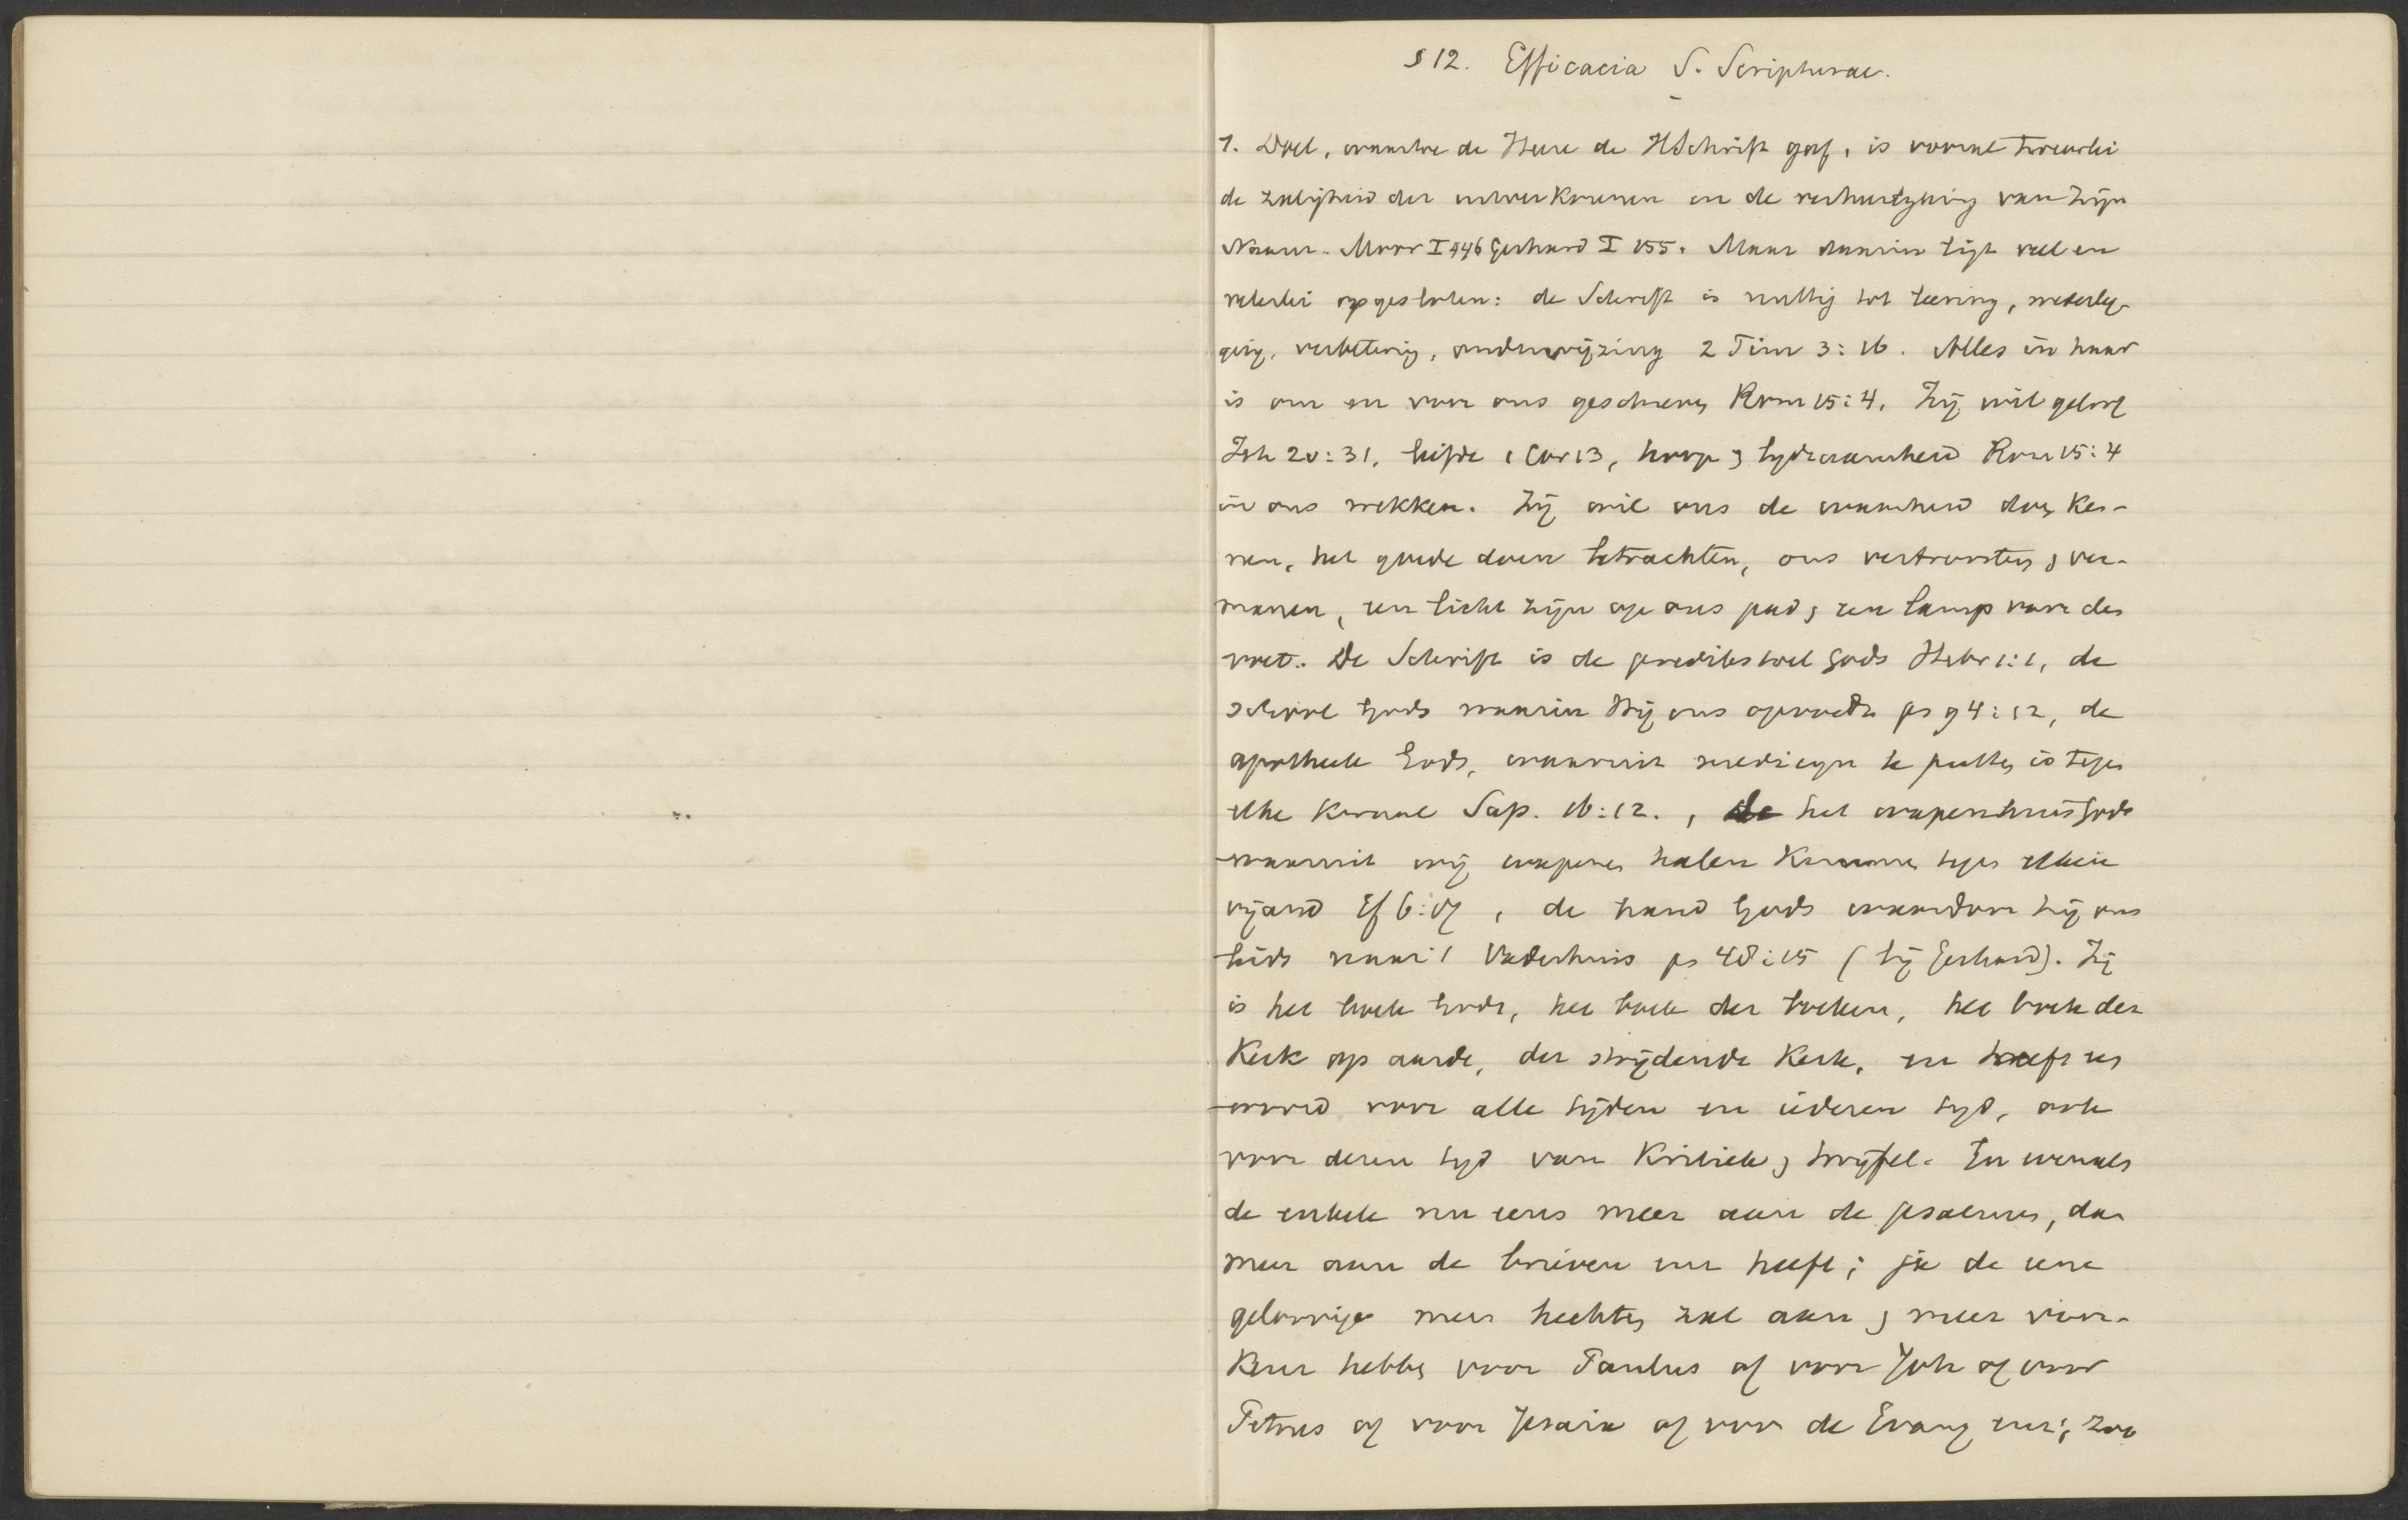 § 12. Efficacia S. Scripturae.
1. Doel, waartoe de Heere de HSchrift gaf, is vooral tweeerlei
de zaligheid der uitverkorenen en de verheerlijking van Zijn
Naam. Moor I 446 Gerhard I 155. Maar daarin ligt veel en
velerlei opgesloten: de Schrift is nuttig tot leering, wederleg-
ging, verbetering, onderwijzing 2 Tim 3:16. Alles in haar
is om en voor ons geschreven Rom 15:4. Zij wil geloof
Joh 20:31, liefde 1 Cor 13, hoop & lydzaamheid Rom 15:4
in ons wekken. Zij wil ons de waarheid doen ken-
nen, het goede doen betrachten, ons vertroosten & ver-
manen, een licht zijn op ons pad & een lamp voor den
voet. De Schrift is de predikstoel Gods Hebr 1:1, de
school Gods waarin Hij ons opvoedt ps 94:12, de
apotheek Gods, waaruit medicijn te putten is tegen
elke kwaal Sap. 16:12. , het wapenhuis Gods
waaruit wij wapenen halen kunnen tegen elken
vijand Ef 6:17, de hand Gods waardoor hij ons
leidt naar 't Vaderhuis ps 48:15 (bij Gerhard). Zij
is het boek Gods, het boek der boeken, het boek der
Kerk op aarde, der strijdende Kerk, en heeft een
woord voor alle tijden en iederen tyd, ook
voor dezen tyd van Kritiek & twijfel. En evenals
de enkele nu eens meer aan de psalmen, dan
meer aan de brieven enz heeft; ja de eene
geloovige meer hechten zal aan & meer voor-
keur hebben voor Paulus of voor Joh of voor
Petrus of voor Jesaia of voor de Evang enz; zoo